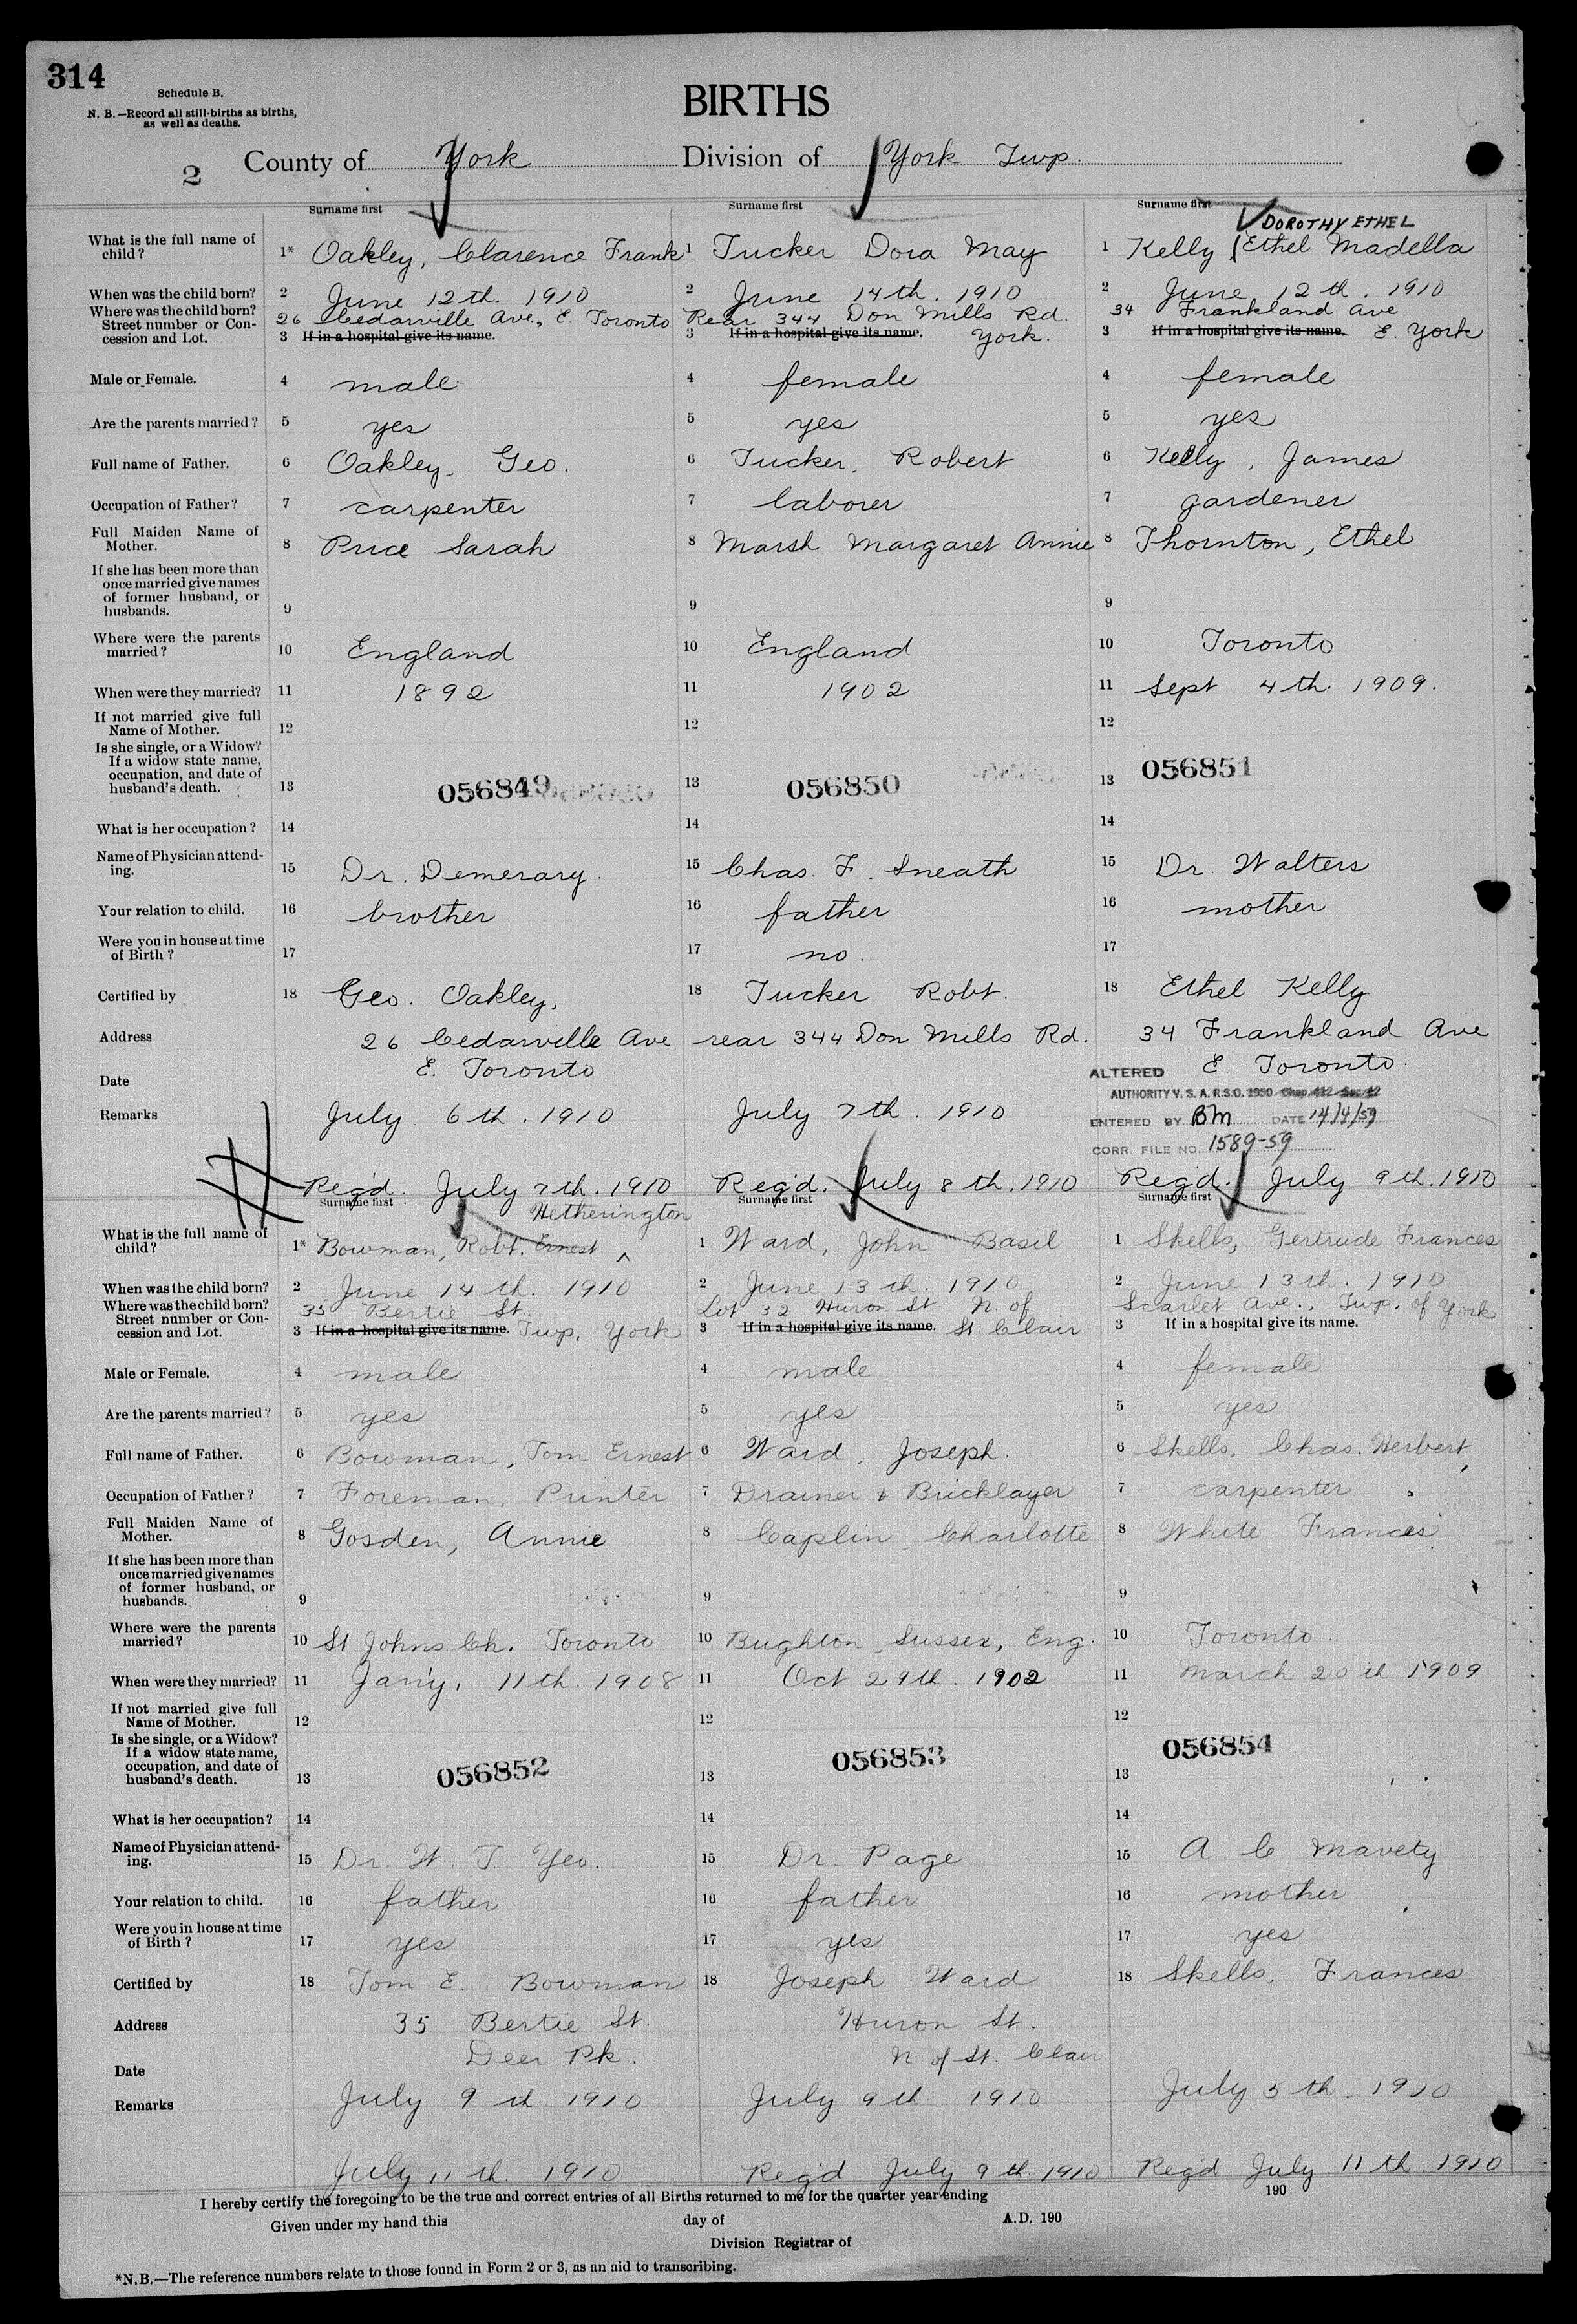 314
Schedule B.
N. B.—Record all still-births as births,
as well as deaths.
BIRTHS
2
County of York
Division of York Twp.
Surname first
What is the full name of child?
1* Oakley, Clarence Frank
When was the child born?
2 June 12th. 1910
Where was the child born? Street number or Concession and Lot.
26 Cedarville Ave., E. Toronto
3 If in a hospital give its name.
Male or Female.
4 male
Are the parents married?
5 yes
Full name of Father.
6 Oakley, Geo.
Occupation of Father?
7 carpenter
Full Maiden Name of Mother.
8 Price Sarah
If she has been more than once married give names of former husband, or husbands.
9
Where were the parents married?
10 England
When were they married?
11 1892
If not married give full Name of Mother.
12
Is she single, or a Widow? If a widow state name, occupation, and date of husband's death.
13
056849
What is her occupation?
14
Name of Physician attending.
15 Dr. Demerary.
Your relation to child.
16 brother
Were you in house at time of Birth?
17
Certified by
18 Geo. Oakley,
Address
26 Cedarville Ave
E. Toronto
Date
Remarks
July 6th. 1910
Reg'd. July 7th. 1910
Surname first
1 Tucker Dora May
2 June 14th. 1910
Rear 344 Don Mills Rd.
3 If in a hospital give its name. York.
4 female
5 yes
6 Tucker, Robert
7 laborer
8 Marsh Margaret Annie
9
10 England
11 1902
12
13
056850
14
15 Chas. F. Sneath
16 father
17 no.
18 Tucker Robt.
rear 344 Don Mills Rd.
July 7th. 1910
Reg'd. July 8th. 1910
Surname first
DOROTHY ETHEL
1 Kelly (Ethel Madella
2 June 12th. 1910
34 Frankland Ave
3 If in a hospital give its name. E. York
4 female
5 yes
6 Kelly, James
7 gardener
8 Thornton, Ethel
9
10 Toronto
11 Sept 4th. 1909.
12
13
056851
14
15 Dr. Walters
16 mother
17
18 Ethel Kelly
34 Frankland Ave
E Toronto.
ALTERED
AUTHORITY V. S. A. R.S.O. 1950 Chap. 412 Sec. 12
ENTERED BY BM DATE 14/4/59
CORR. FILE NO. 1589-59
Reg'd. July 9th. 1910
Surname first
Hetherington
What is the full name of child?
1* Bowman, Robt. Ernest ^
When was the child born?
2 June 14th. 1910
Where was the child born? Street number or Concession and Lot.
35 Bertie St.
3 If in a hospital give its name. Twp. York
Male or Female.
4 male
Are the parents married?
5 yes
Full name of Father.
6 Bowman, Tom Ernest
Occupation of Father?
7 Foreman, Printer
Full Maiden Name of Mother.
8 Gosden, Annie
If she has been more than once married give names of former husband, or husbands.
9
Where were the parents married?
10 St. Johns Ch. Toronto
When were they married?
11 Jan'y. 11th. 1908
If not married give full Name of Mother.
12
Is she single, or a Widow? If a widow state name, occupation, and date of husband's death.
13
056852
What is her occupation?
14
Name of Physician attending.
15 Dr. W. T. Yeo.
Your relation to child.
16 father
Were you in house at time of Birth?
17 yes
Certified by
18 Tom E. Bowman
Address
35 Bertie St.
Deer Pk.
Date
Remarks
July 9th 1910
July 11th. 1910
Surname first
1 Ward, John Basil
2 June 13th. 1910
Lot 32 Huron St N. of
3 If in a hospital give its name. St Clair
4 male
5 yes
6 Ward, Joseph.
7 Drainer & Bricklayer
8 Caplin, Charlotte
9
10 Brighton, Sussex, Eng.
11 Oct 29th. 1902
12
056853
13
14
15 Dr. Page
16 father
17 yes
18 Joseph Ward
Huron St.
N of St. Clair
July 9th 1910
Reg'd July 9th 1910
Surname first
1 Skells, Gertrude Frances
2 June 13th. 1910
Scarlet Ave., Twp. of York
3 If in a hospital give its name.
4 female
5 yes
6 Skells, Chas. Herbert
7 carpenter
8 White Frances
9
10 Toronto
11 March 20th 1909
12
056854
13
14
15 A C Mavety
16 mother
17 yes
18 Skells, Frances
July 5th. 1910
Reg'd July 11th. 1910
I hereby certify the foregoing to be the true and correct entries of all Births returned to me for the quarter year ending 190
Given under my hand this day of A.D. 190
Division Registrar of
*N.B.—The reference numbers relate to those found in Form 2 or 3, as an aid to transcribing.